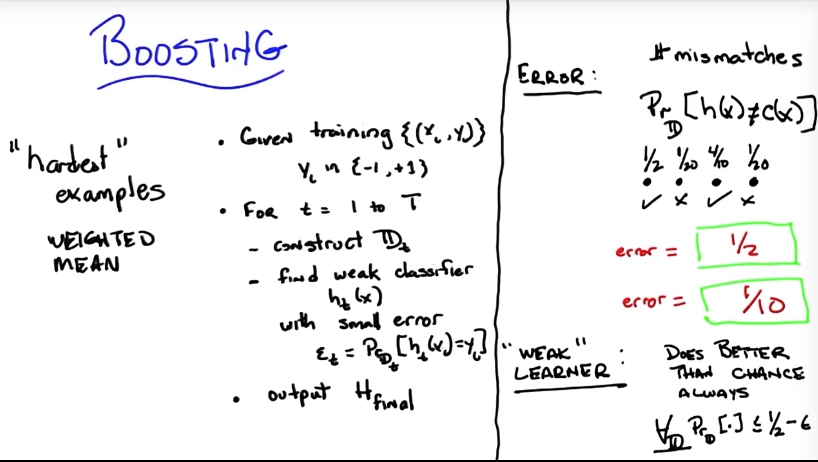 BOOSTING
"hardest"
examples
WEIGHTED
MEAN
• Given training {(x_i, y_i)}
y_i in {-1, +1}
• For t = 1 to T
- construct D_t
- find weak classifier
h_t(x)
with small error
ε_t = Pr_D_t [h_t(x)=y_i]
• output H_final
ERROR:
# mismatches
Pr_D [h(x) ≠ c(x)]
1/2 1/20 4/10 1/20
✓ x ✓ x
error = 1/2
error = 1/10
"WEAK" :
LEARNER
DOES BETTER
THAN CHANCE
ALWAYS
∀_D Pr_D [·] ≤ 1/2 - ε